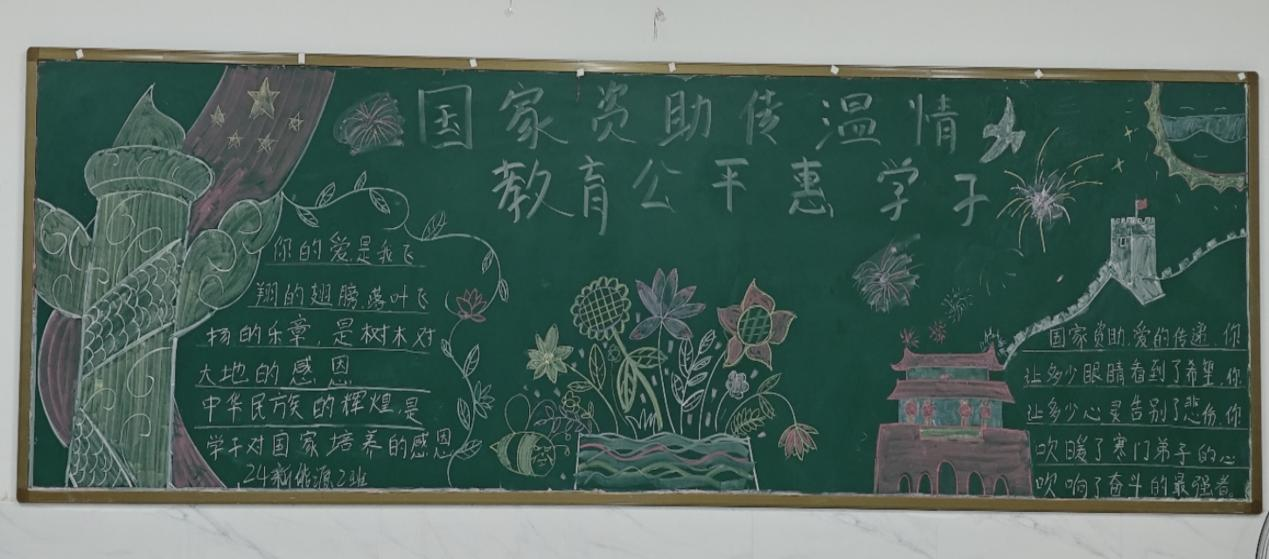 国家资助传温情
教育公平惠学子
你的爱是我飞
翔的翅膀,落叶飞
扬的乐章,是树木对
大地的感恩
中华民族的辉煌,是
学子对国家培养的感恩
24新能源2班
国家资助,爱的传递,你
让多少眼睛看到了希望,你
让多少心灵告别了悲伤,你
吹暖了寒门弟子的心
吹响了奋斗的最强者。